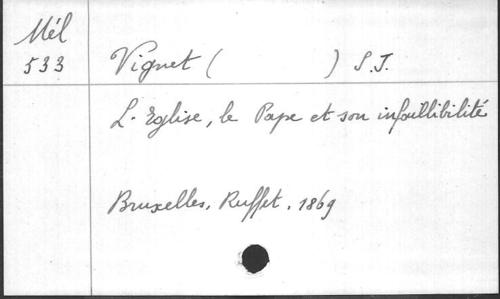 Mél
533
Vignet ( ) S.J.
L'Eglise, le Pape et son infaillibilité
Bruxelles, Ruffet, 1869